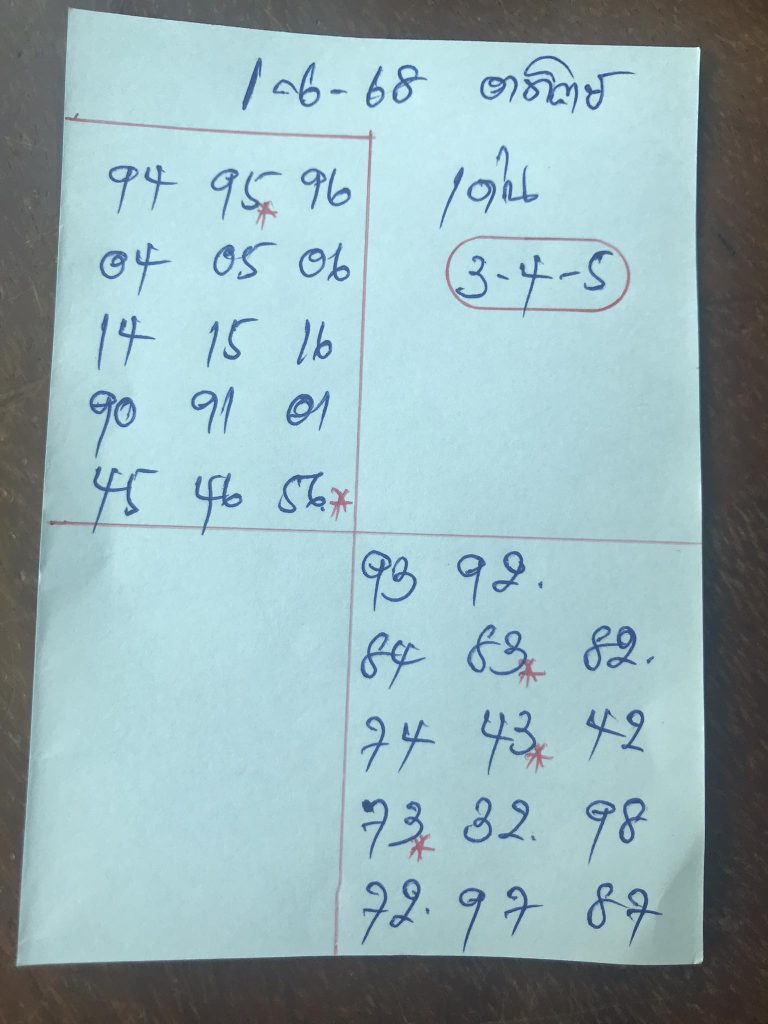 1-6-68 อาทิตย์
94 95* 96
04 05 06
14 15 16
90 91 01
45 46 56*
เด่น
3-4-5
93 92.
84 83* 82.
74 43* 42
73* 32. 98
72. 97 87